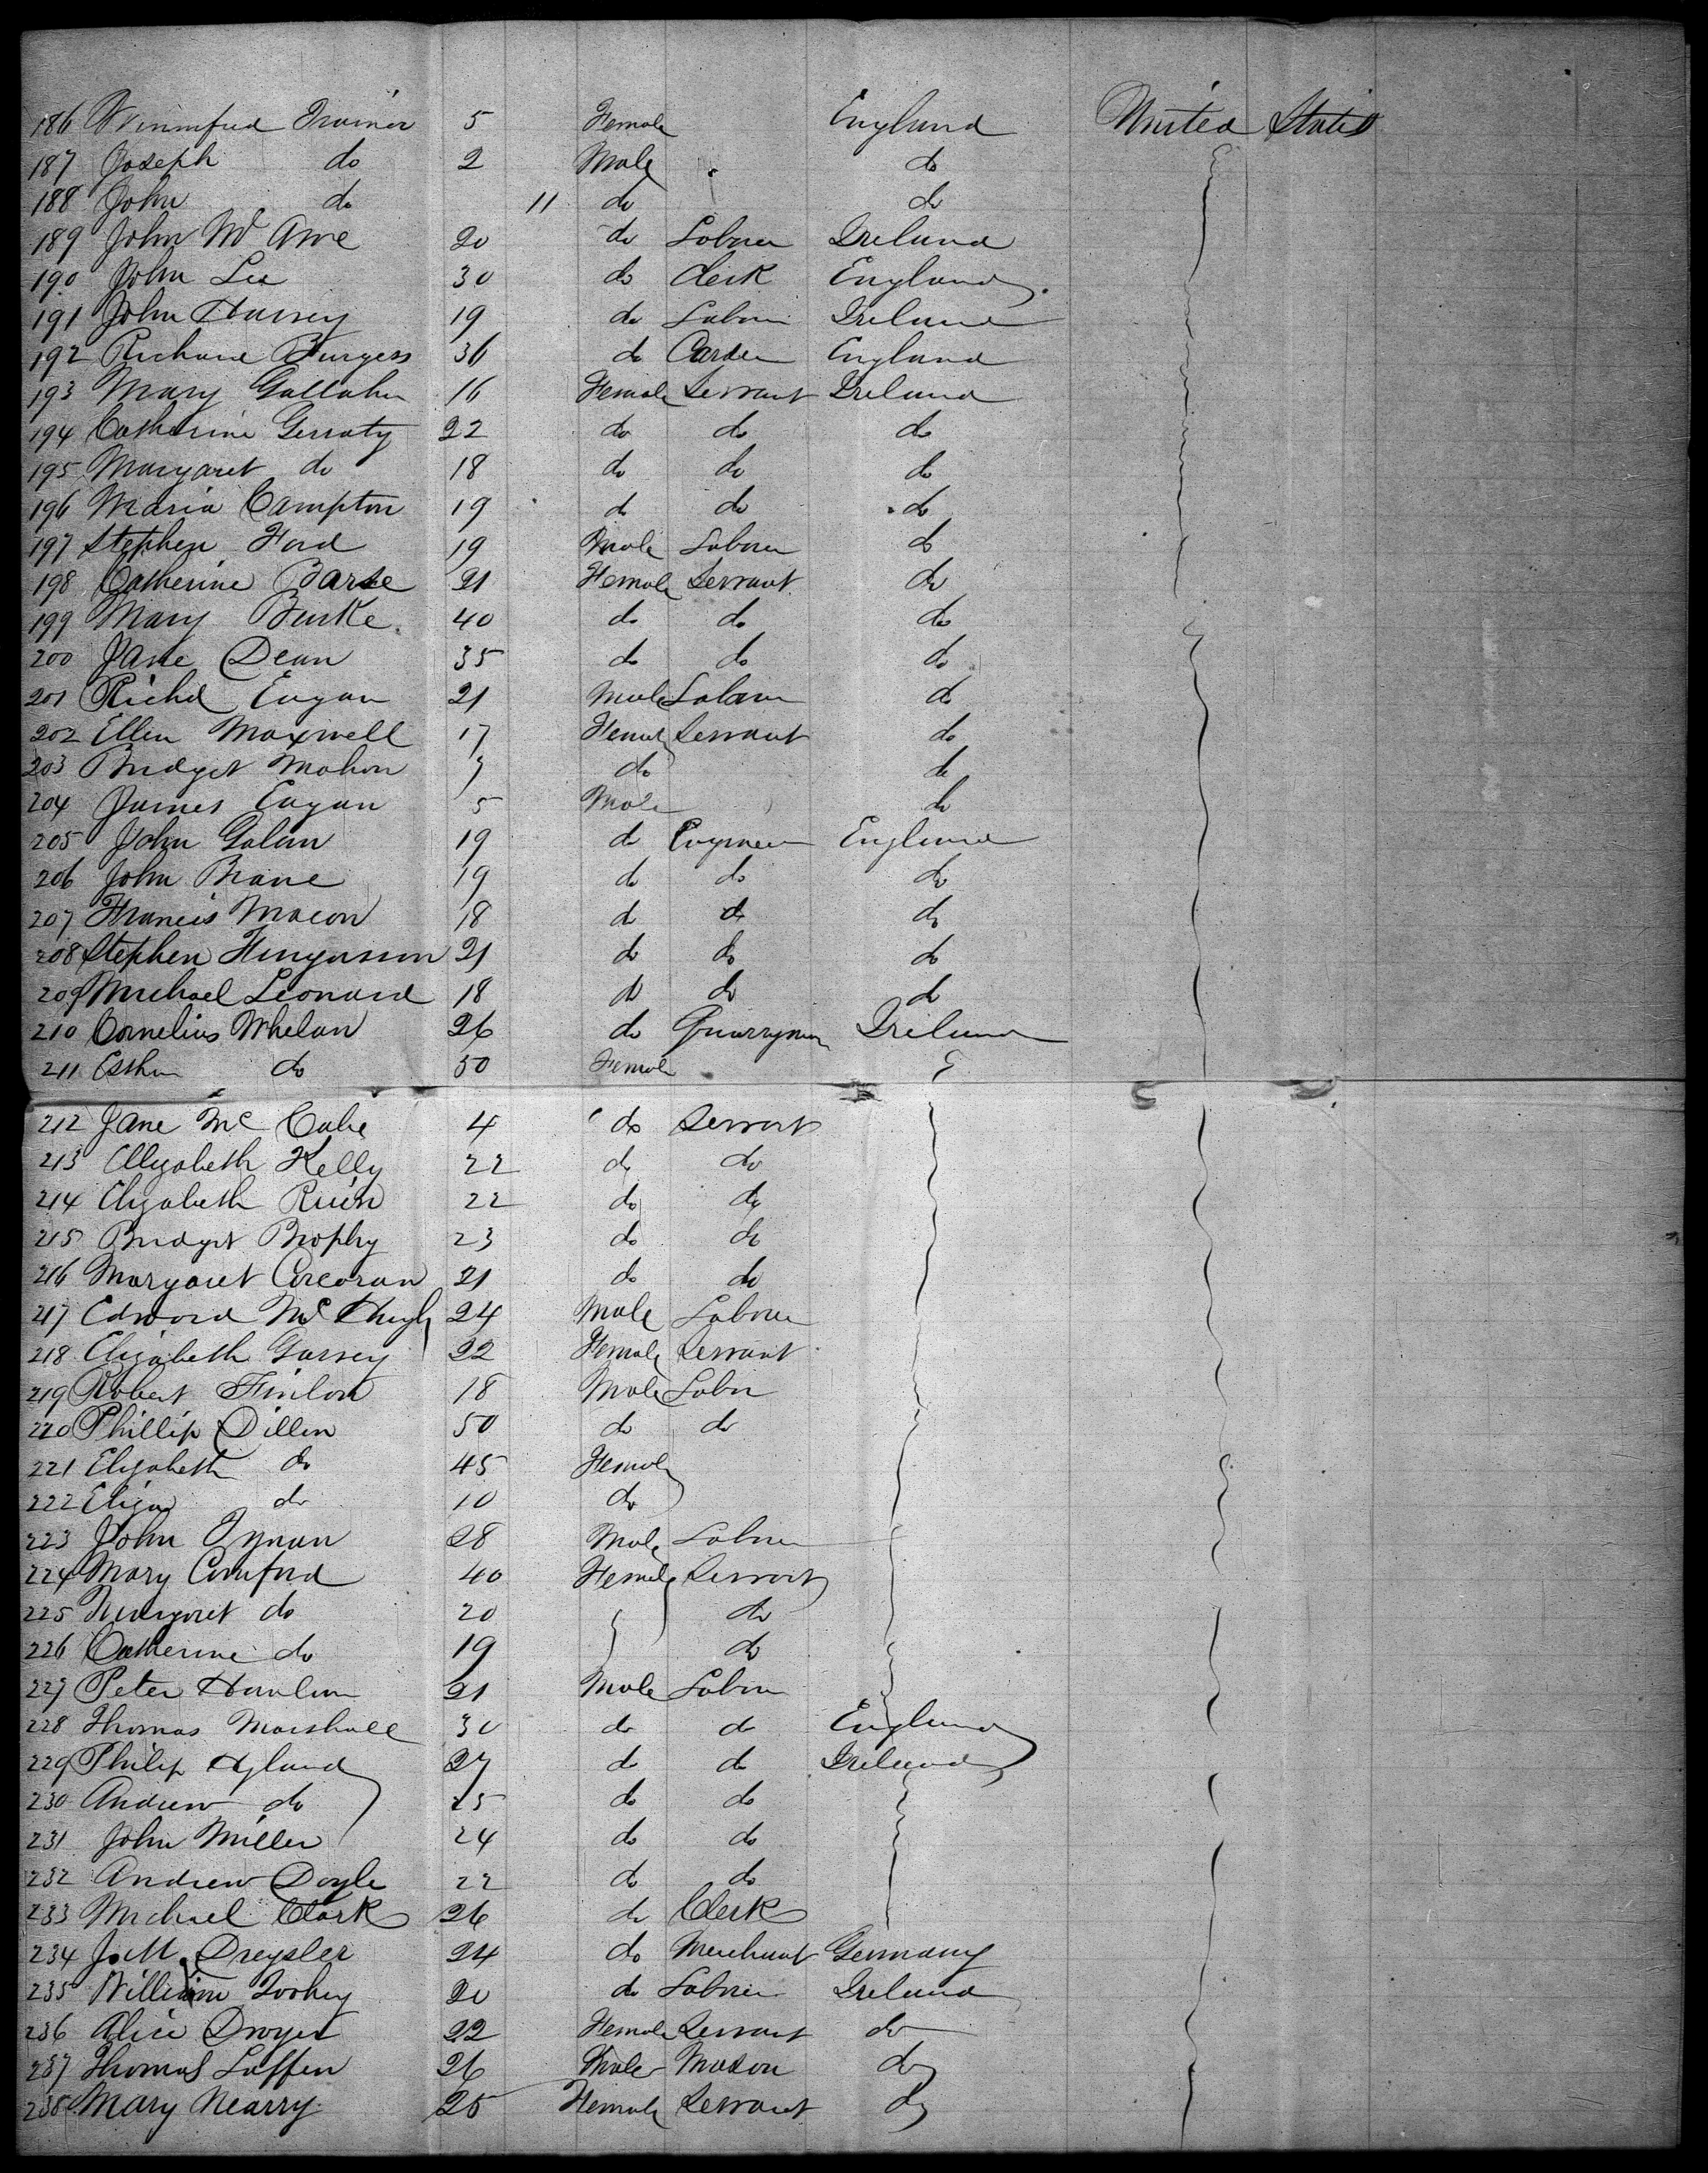 186 Winnifred Trainor 5 Female England United States
187 Joseph do 2 Male do
188 John do 11 do do
189 John Mc Ame 20 do Laborer Ireland
190 John Lee 30 do Clerk England
191 John Harvey 19 do Laborer Ireland
192 Richard Burgess 36 do Carder England
193 Mary Gallaher 16 Female Servant Ireland
194 Catherine Gerraty 22 do do do
195 Margaret do 18 do do do
196 Maria Campton 19 do do do
197 Stephen Ford 19 Male Laborer do
198 Catherine Barse 21 Female Servant do
199 Mary Burke 40 do do do
200 Jane Dean 35 do do do
201 Richd Eagan 21 Male Laborer do
202 Ellen Maxwell 17 Female Servant do
203 Bridget Mahon 7 do do
204 James Eagan 5 Male do
205 John Golan 19 do Engineer England
206 John Brane 19 do do do
207 Francis Macon 18 do do do
208 Stephen Furgusson 21 do do do
209 Michael Leonard 18 do do do
210 Cornelius Whelan 26 do Quarryman Ireland
211 Esther do 50 Female
212 Jane Mc Cabe 4 do Servant
213 Elizabeth Kelly 22 do do
214 Elizabeth 22 do do
215 Bridget Brophy 23 do do
216 Margaret Corcoran 21 do do
217 Edward Mc Hugh 24 Male Laborer
218 Elizabeth Garvey 22 Female Servant
219 Robert Finlon 18 Male Labor
220 Phillip Dillen 50 do do
221 Elizabeth do 45 Female
222 Eliza do 10 do
223 John Tynan 28 Male Laborer
224 Mary Comford 40 Female Servant
225 Margaret do 20 do
226 Catherine do 19 do
227 Peter Hanlon 21 Male Laborer
228 Thomas Marshall 30 do do England
229 Philip Hyland 27 do do Ireland
230 Andrew do 25 do do
231 John Miller 24 do do
232 Andrew Doyle 22 do do
233 Michael Clark 26 do Clerk
234 J. M. Dreysler 24 do Merchant Germany
235 William Toohey 20 do Laborer Ireland
236 Alice Dwyer 22 Female Servant do
237 Thomas Laffen 26 Male Mason do
238 Mary Nearry 25 Female Servant do